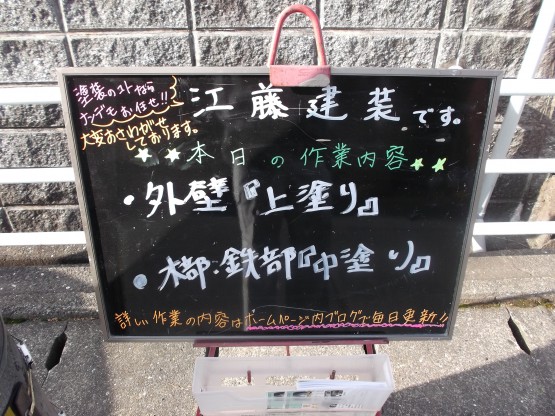 塗装のコトなら
ナンデもお任せ!!
大変おさわがせ
しております。
江藤建装です。
★★本日の作業内容★★
・外壁『上塗り』
・木部・鉄部『中塗り』
詳しい作業の内容はホームページ内ブログで毎日更新!!